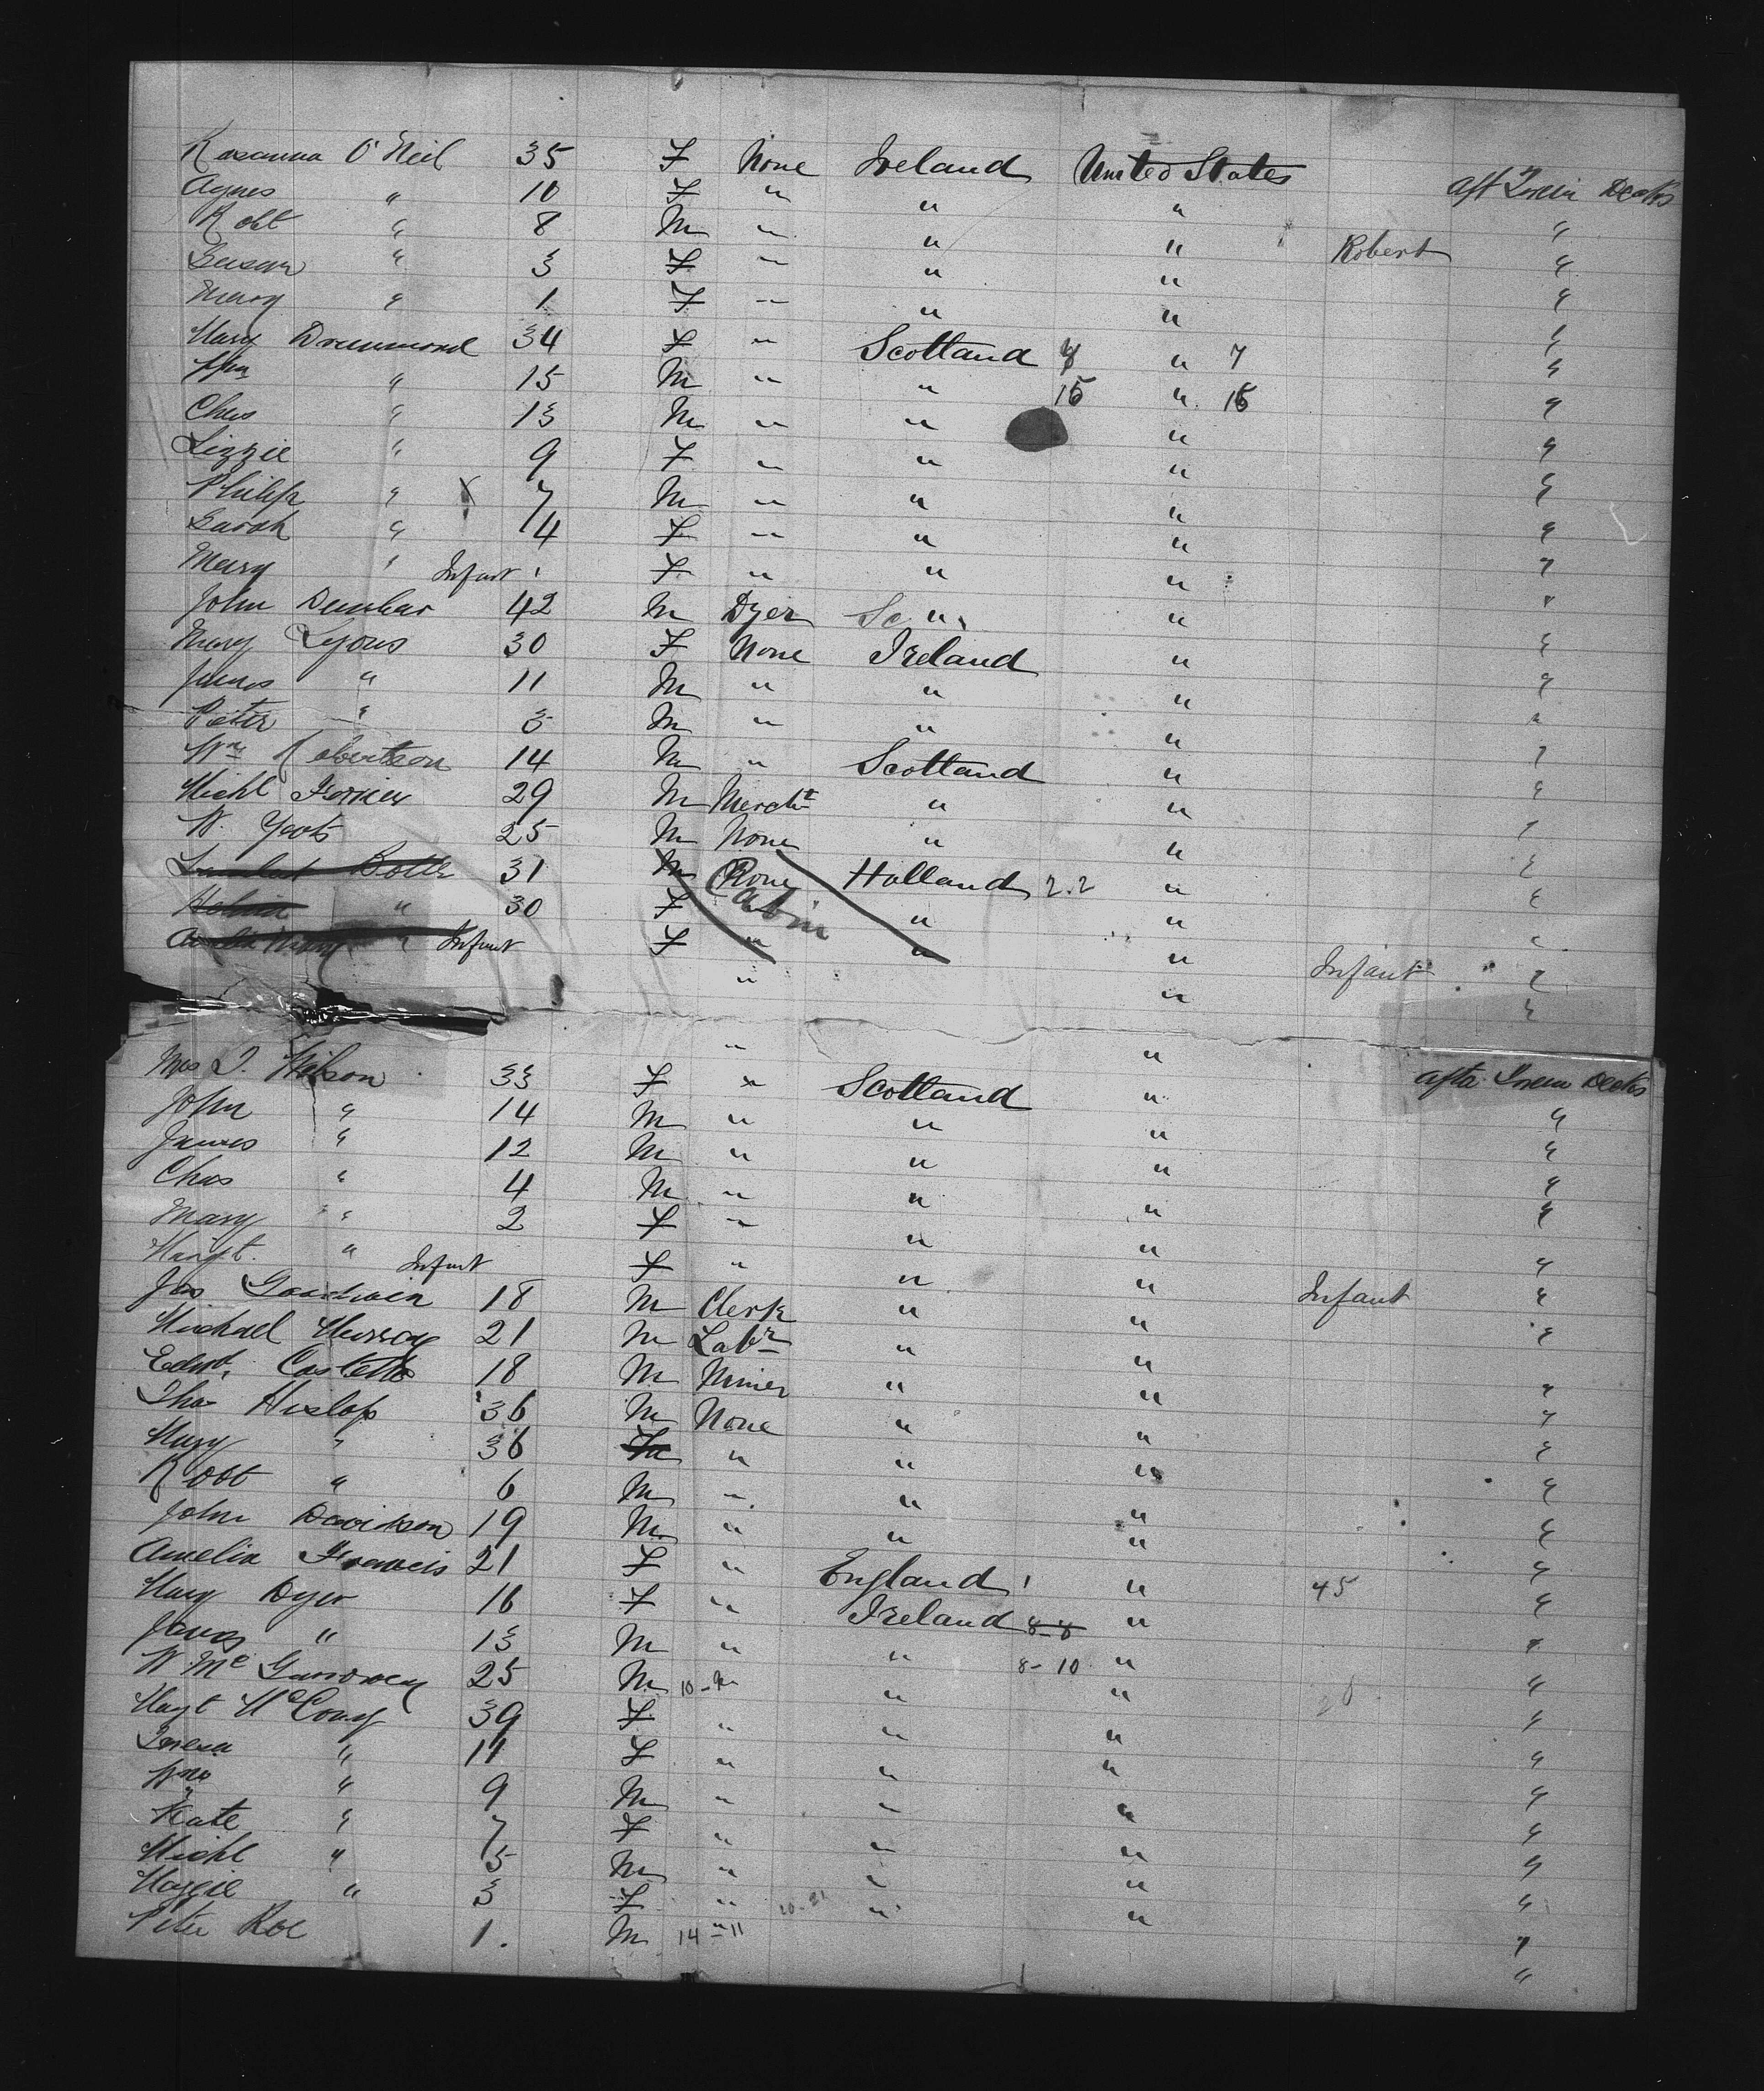 Rosanna O'Neil 35 F None Ireland United States Aft Decks
Agnes " 10 F " " " "
Robt " 8 M " " " Robert "
Susan " 3 F " " " "
Mary " 1 F " " " "
Mary Drummond 34 F " Scotland 7 " 7 "
Wm " 15 M " " 15 " 15 "
Chas " 13 M " " " "
Lizzie " 9 F " " " "
Philip " X 7 M " " " "
Sarah " 4 F " " " "
Mary " Infant F " " " "
John Dunbar 42 M Dyer Sc " " "
Mary Lyons 30 F None Ireland " "
James " 11 M " " " "
Peter " 3 M " " " "
Wm Robertson 14 M " Scotland " "
Michl 29 M Mercht " " "
W. Yeats 25 M None " " "
Botth 31 M None Holland 2.2 " "
Helna " 30 F Cabin " " "
" Infant F " " " Infant "
" " "
" "
Mrs J. Wilson 33 F " Scotland " Aft Decks
John " 14 M " " " "
James " 12 M " " " "
Chas " 4 M " " " "
Mary " 2 F " " " "
Margt. " Infant F " " " "
Jas Goodwin 18 M Clerk " " Infant "
Michael Murray 21 M Labr " " "
Edwd. Costello 18 M Miner " " "
Thos Hislop 36 M None " " "
Mary " 36 " " " "
Robt " 6 M " " " "
John Davidson 19 M " " " "
Amelia Francis 21 F " England " 45 "
Mary Dyer 16 F " Ireland 8-8 " "
James " 13 M " " 8-10 " "
W Mc 25 M 10- " " " "
Margt McCoury 39 F " " " "
Teresa " 11 F " " " "
Wm " 9 M " " " "
Kate " 7 F " " " "
Michl " 5 M " " " "
Maggie " 3 F " 20-21 " " "
Peter Roe 1. M 14-11 "